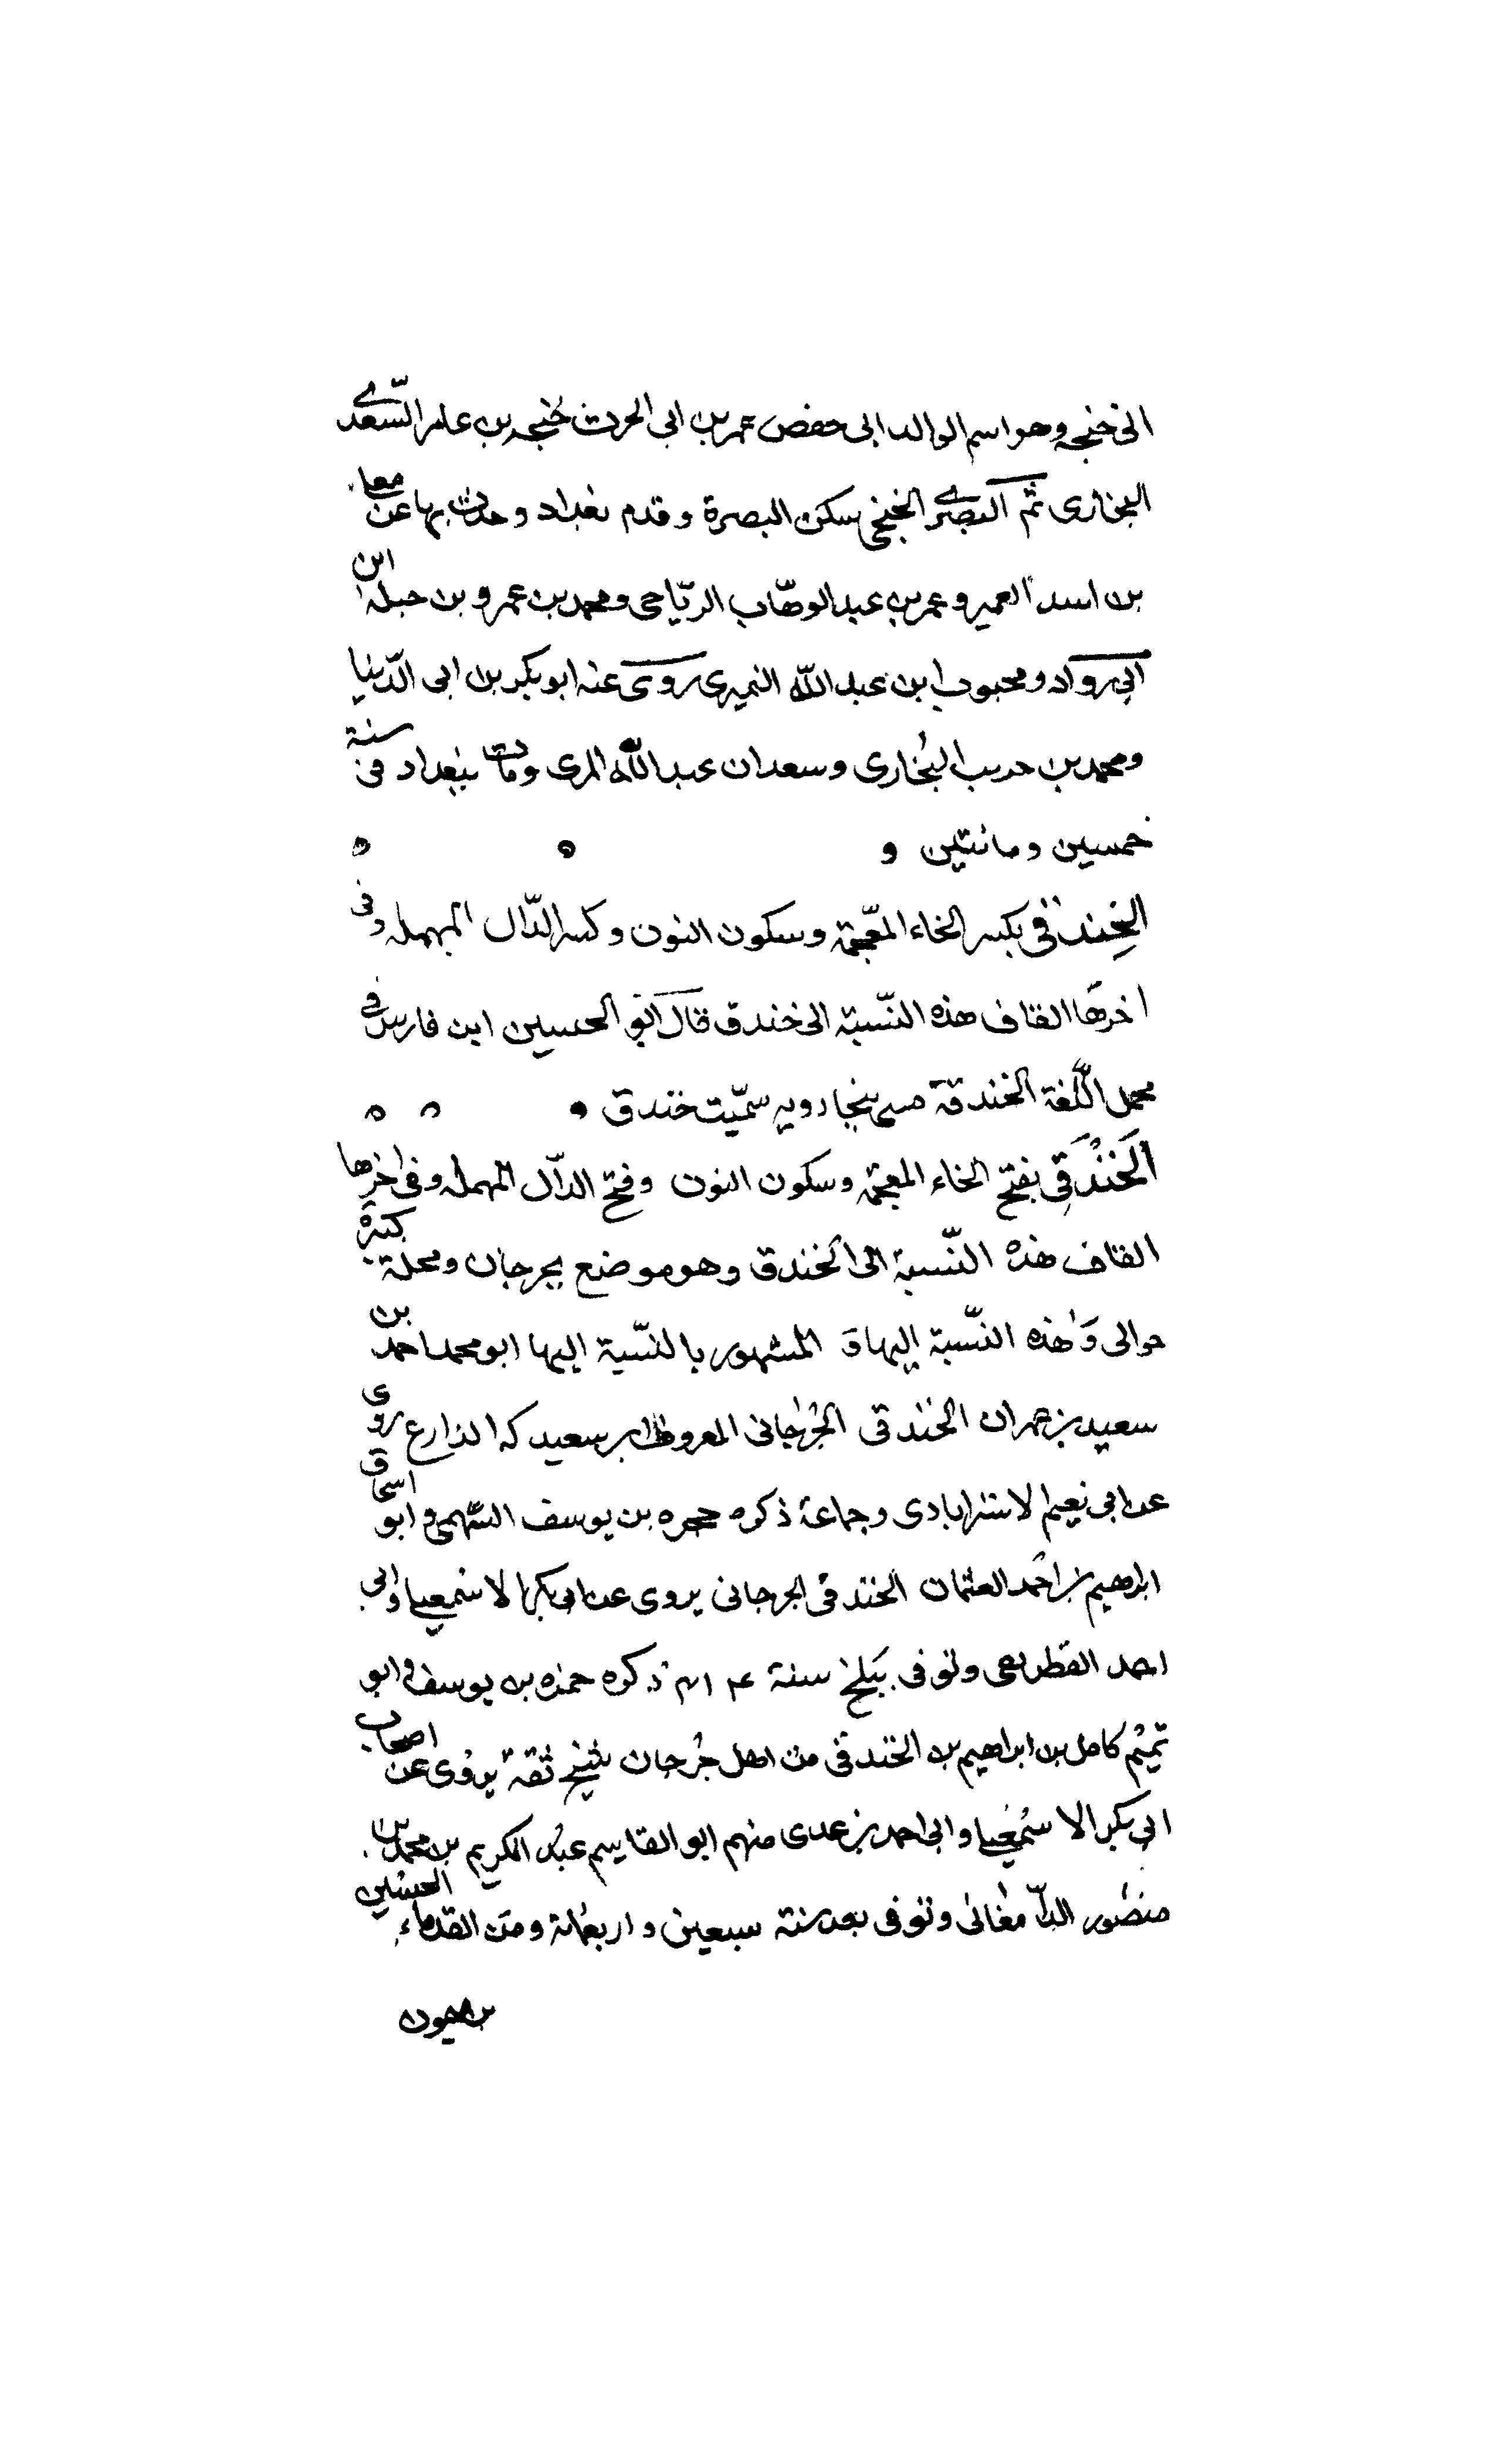 الى خنجه وهو اسم الوالد ابى حفص عمر بن ابى الحرث خنجه بن عامر السّعدى
البخارى ثم البصرى الخنجى سكن البصرة وقدم بغداد وحدث بها عن معلى
بن اسد العمير وعمر بن عبد الوهّاب الريّاحى ومحمد بن عمرو بن جبله ابن
ابى رواد ومحبوب ابن عبد اللّه النميرى روى عنه ابو بكر بن ابى الدّنيا
ومحمد بن حرب البُخارى وسعدان عبد اللّه المرى ومات ببغداد فى سنة
خمسين ومائتين و
الخِندقى بكسر الخاء المعّجمة وسكون النون وكسر الدّال المهمله وفى
اخرها القاف هذه النّسبة الى خندق قال ابو الحسين ابن فارس فى
مجمل اللّغة الخندقة سميت خندق
الخَنْدَقِى بفتح الخاء المعجمة وسكون النون وفتح الدّال المهمله وفى اخرها
القاف هذه النّسبة الى الخندق وهو موضع بجرجان ومحلة كبيرة
حوالى وهذه النّسبة اليها المشهور بالنّسبة اليها ابو محمد احمد بن
سعيد بن عمران الخندقى الجُرجانى سعيدكه الذارع روى
عن ابى نعيم الاستراباذى وجماعة ذكره حمزه بن يوسف السّهمى وابو اسحاق
ابراهيم بن احمد العثمان الخندقى الجرجانى يروى عن ابى بكر الاسمعيلى وابى
احمد الغطريفى وتوفى ببلخ سنة ٤١٣ ذكره حمزه بن يوسف وابو
تميُم كامل بن ابراهيم بن الخندقى من اهل جُرجان شيخ ثقة يروى عن اصحاب
ابى بكر الاسمعيلى وابى احمد بن عدى منهم ابو القاسم عبد الكريم بن محمد بن
منصُور الدّامغانى وتوفى بعد سنة سبعين واربعمائة ومن القدماء الحسين
بن ميمون